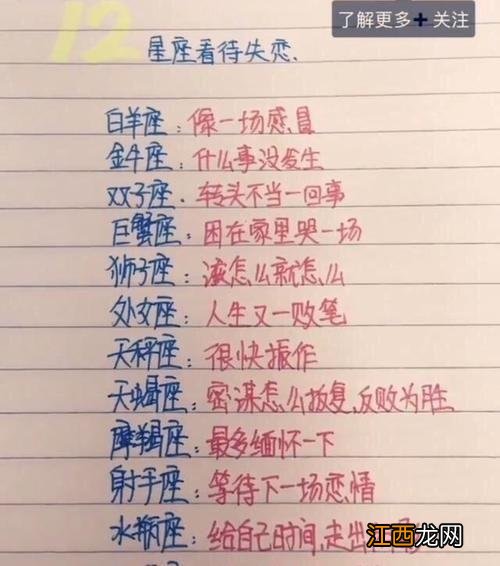 了解更多+ 关注
12
星座看待失恋.
白羊座：像一场感冒
金牛座：什么事没发生
双子座．转头不当一回事
巨蟹座：困在家里哭一场
狮子座：该怎么就怎么
处女座：人生又一败笔
天秤座：很快振作
天蝎座：密谋怎么报复，反败为胜
摩羯座：最多缅怀一下
射手座：等待下一场恋情
水瓶座：给自己时间，走出
江西龙网